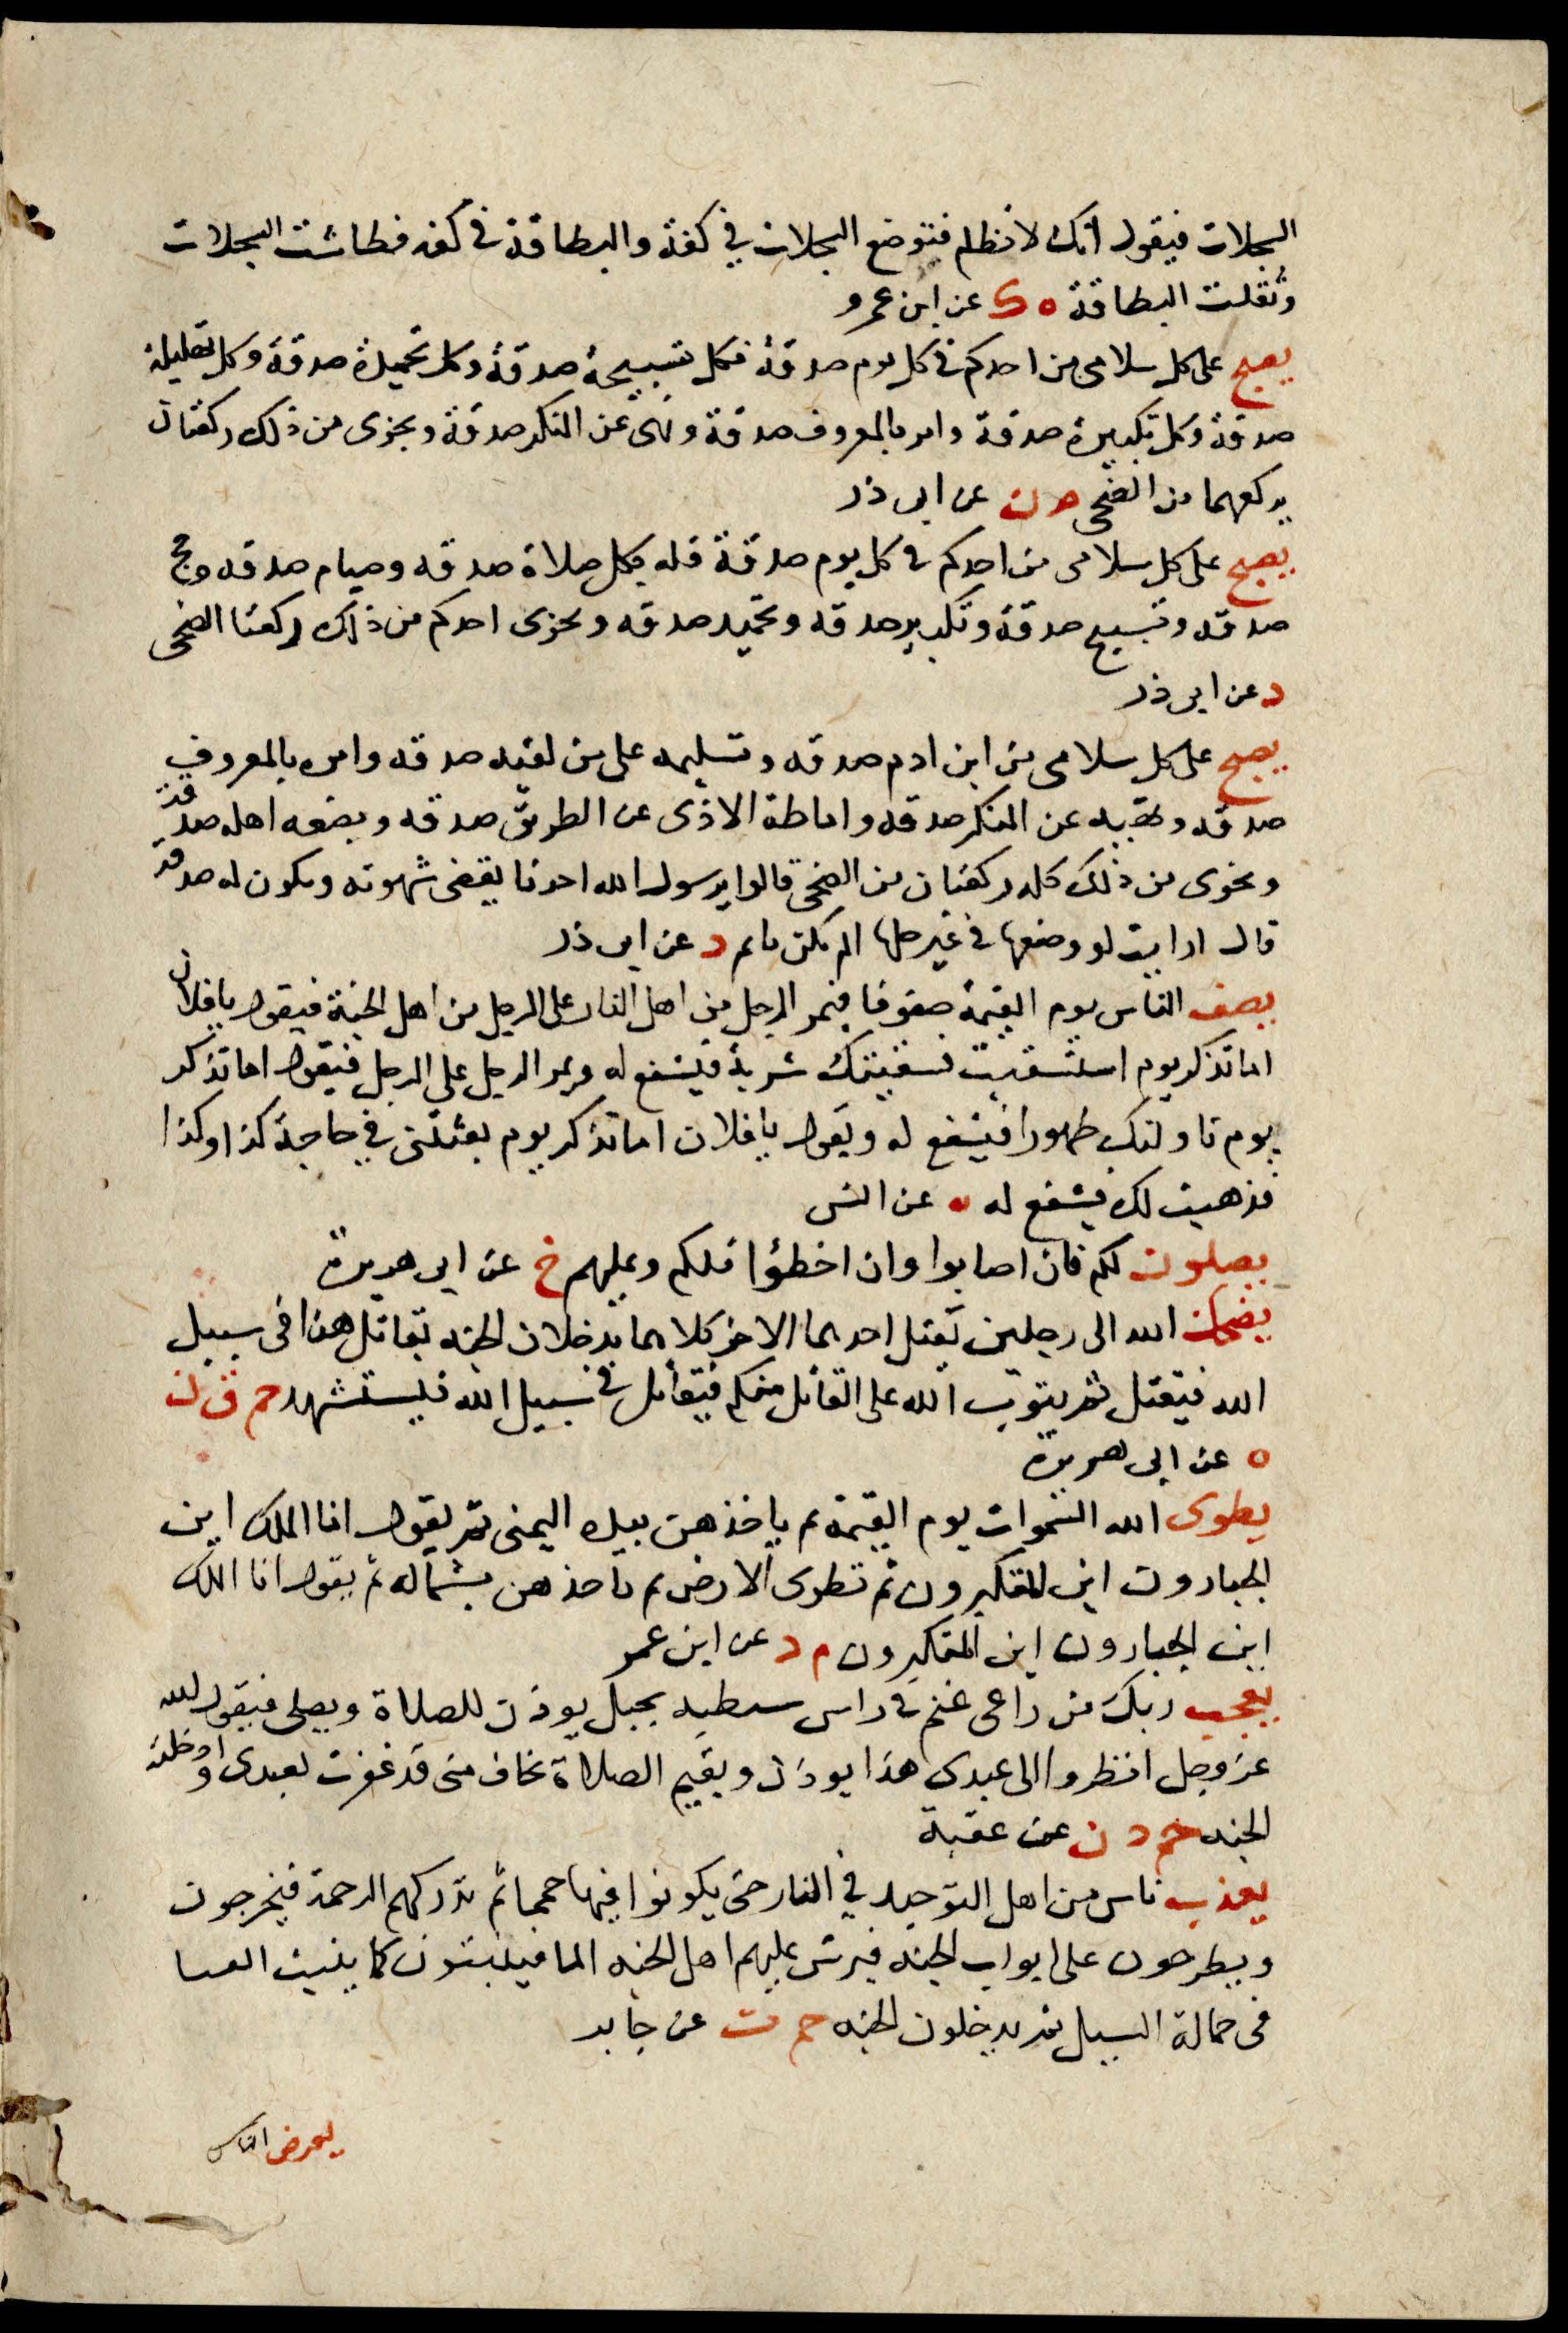 السجلات فيقول انك لا تظلم فتوضع السجلات في كفة والبطاقة في كفه فطاشت السجلات
وثقلت البطاقة ه ك عن ابن عمرو
يصبح على كل سلامى من احدكم في كل يوم صدقة فكل تسبيحة صدقة وكل تحميدة صدقة وكل تهليلة
صدقة وكل تكبيرة صدقة وامر بالمعروف صدقة ونهى عن المنكر صدقة ويجزى من ذلك ركعتان
يركعهما من الضحى م ن عن ابى ذر
يصبح على كل سلامى من احدكم في كل يوم صدقة فله بكل صلاة صدقه وصيام صدقه وحج
صدقه وتسبيح صدقة وتكبير صدقه وتحميد صدقه ويجزى احدكم من ذلك ركعتا الضحى
د عن ابى ذر
يصبح على كل سلامى من ابن ادم صدقه وتسليمه على من لقيه صدقه وامره بالمعروف
صدقه ونهيه عن المنكر صدقه واماطة الاذى عن الطريق صدقه وبضعه اهله صدقة
ويجزى من ذلك كله ركعتان من الضحى قالوا يرسول الله احدنا يقضى شهوته ويكون له صدقة
قال ارايت لو وضعها في غير حلها الم يكن ياثم د عن ابى ذر
يصف الناس يوم القيمة صفوفا فيمر الرجل من اهل النار على الرجل من اهل الجنة فيقول يا فلان
اما تذكر يوم استسقيت فسقيتك شربة فيشفع له ويمر الرجل على الرجل فيقول اما تذكر
يوم ناولتك طهورا فيشفع له ويقول يا فلان اما تذكر يوم بعثتنى في حاجة كذا وكذا
فذهبت لك فيشفع له ه عن انس
يصلون لكم فان اصابوا وان اخطؤا فلكم وعليهم خ عن ابى هريرة
يضحك الله الى رجلين يقتل احدهما الاخر كلاهما يدخلان الجنه يقاتل هذا فى سبيل
الله فيقتل ثم يتوب الله على القاتل فيقاتل في سبيل الله فيستشهد حم ق ن
ه عن ابى هريرة
يطوى الله السموات يوم القيمة ثم ياخذهن بيده اليمنى ثم يقول انا الملك اين
الجبارون اين المتكبرون ثم تطوى الارض ثم ياخذهن بشماله ثم يقول انا الملك
اين الجبارون اين المتكبرون م د عن ابن عمر
يعجب ربك من راعى غنم في راس شظيه بجبل يوذن للصلاة ويصلى فيقول الله
عز وجل انظروا الى عبدى هذا يوذن ويقيم الصلاة يخاف منى قد غفرت لعبدى وادخلته
الجنه حم د ن عن عقبة
يعذب ناس من اهل التوحيد في النار حتى يكونوا فيها حمما ثم تدركهم الرحمة فيخرجون
ويطرحون على ابواب الجنه فيرش عليهم اهل الجنه الما فينبتون كما ينبت الغثا
فى حمالة السيل ثم يدخلون الجنه حم ت عن جابر
يعرض الناس